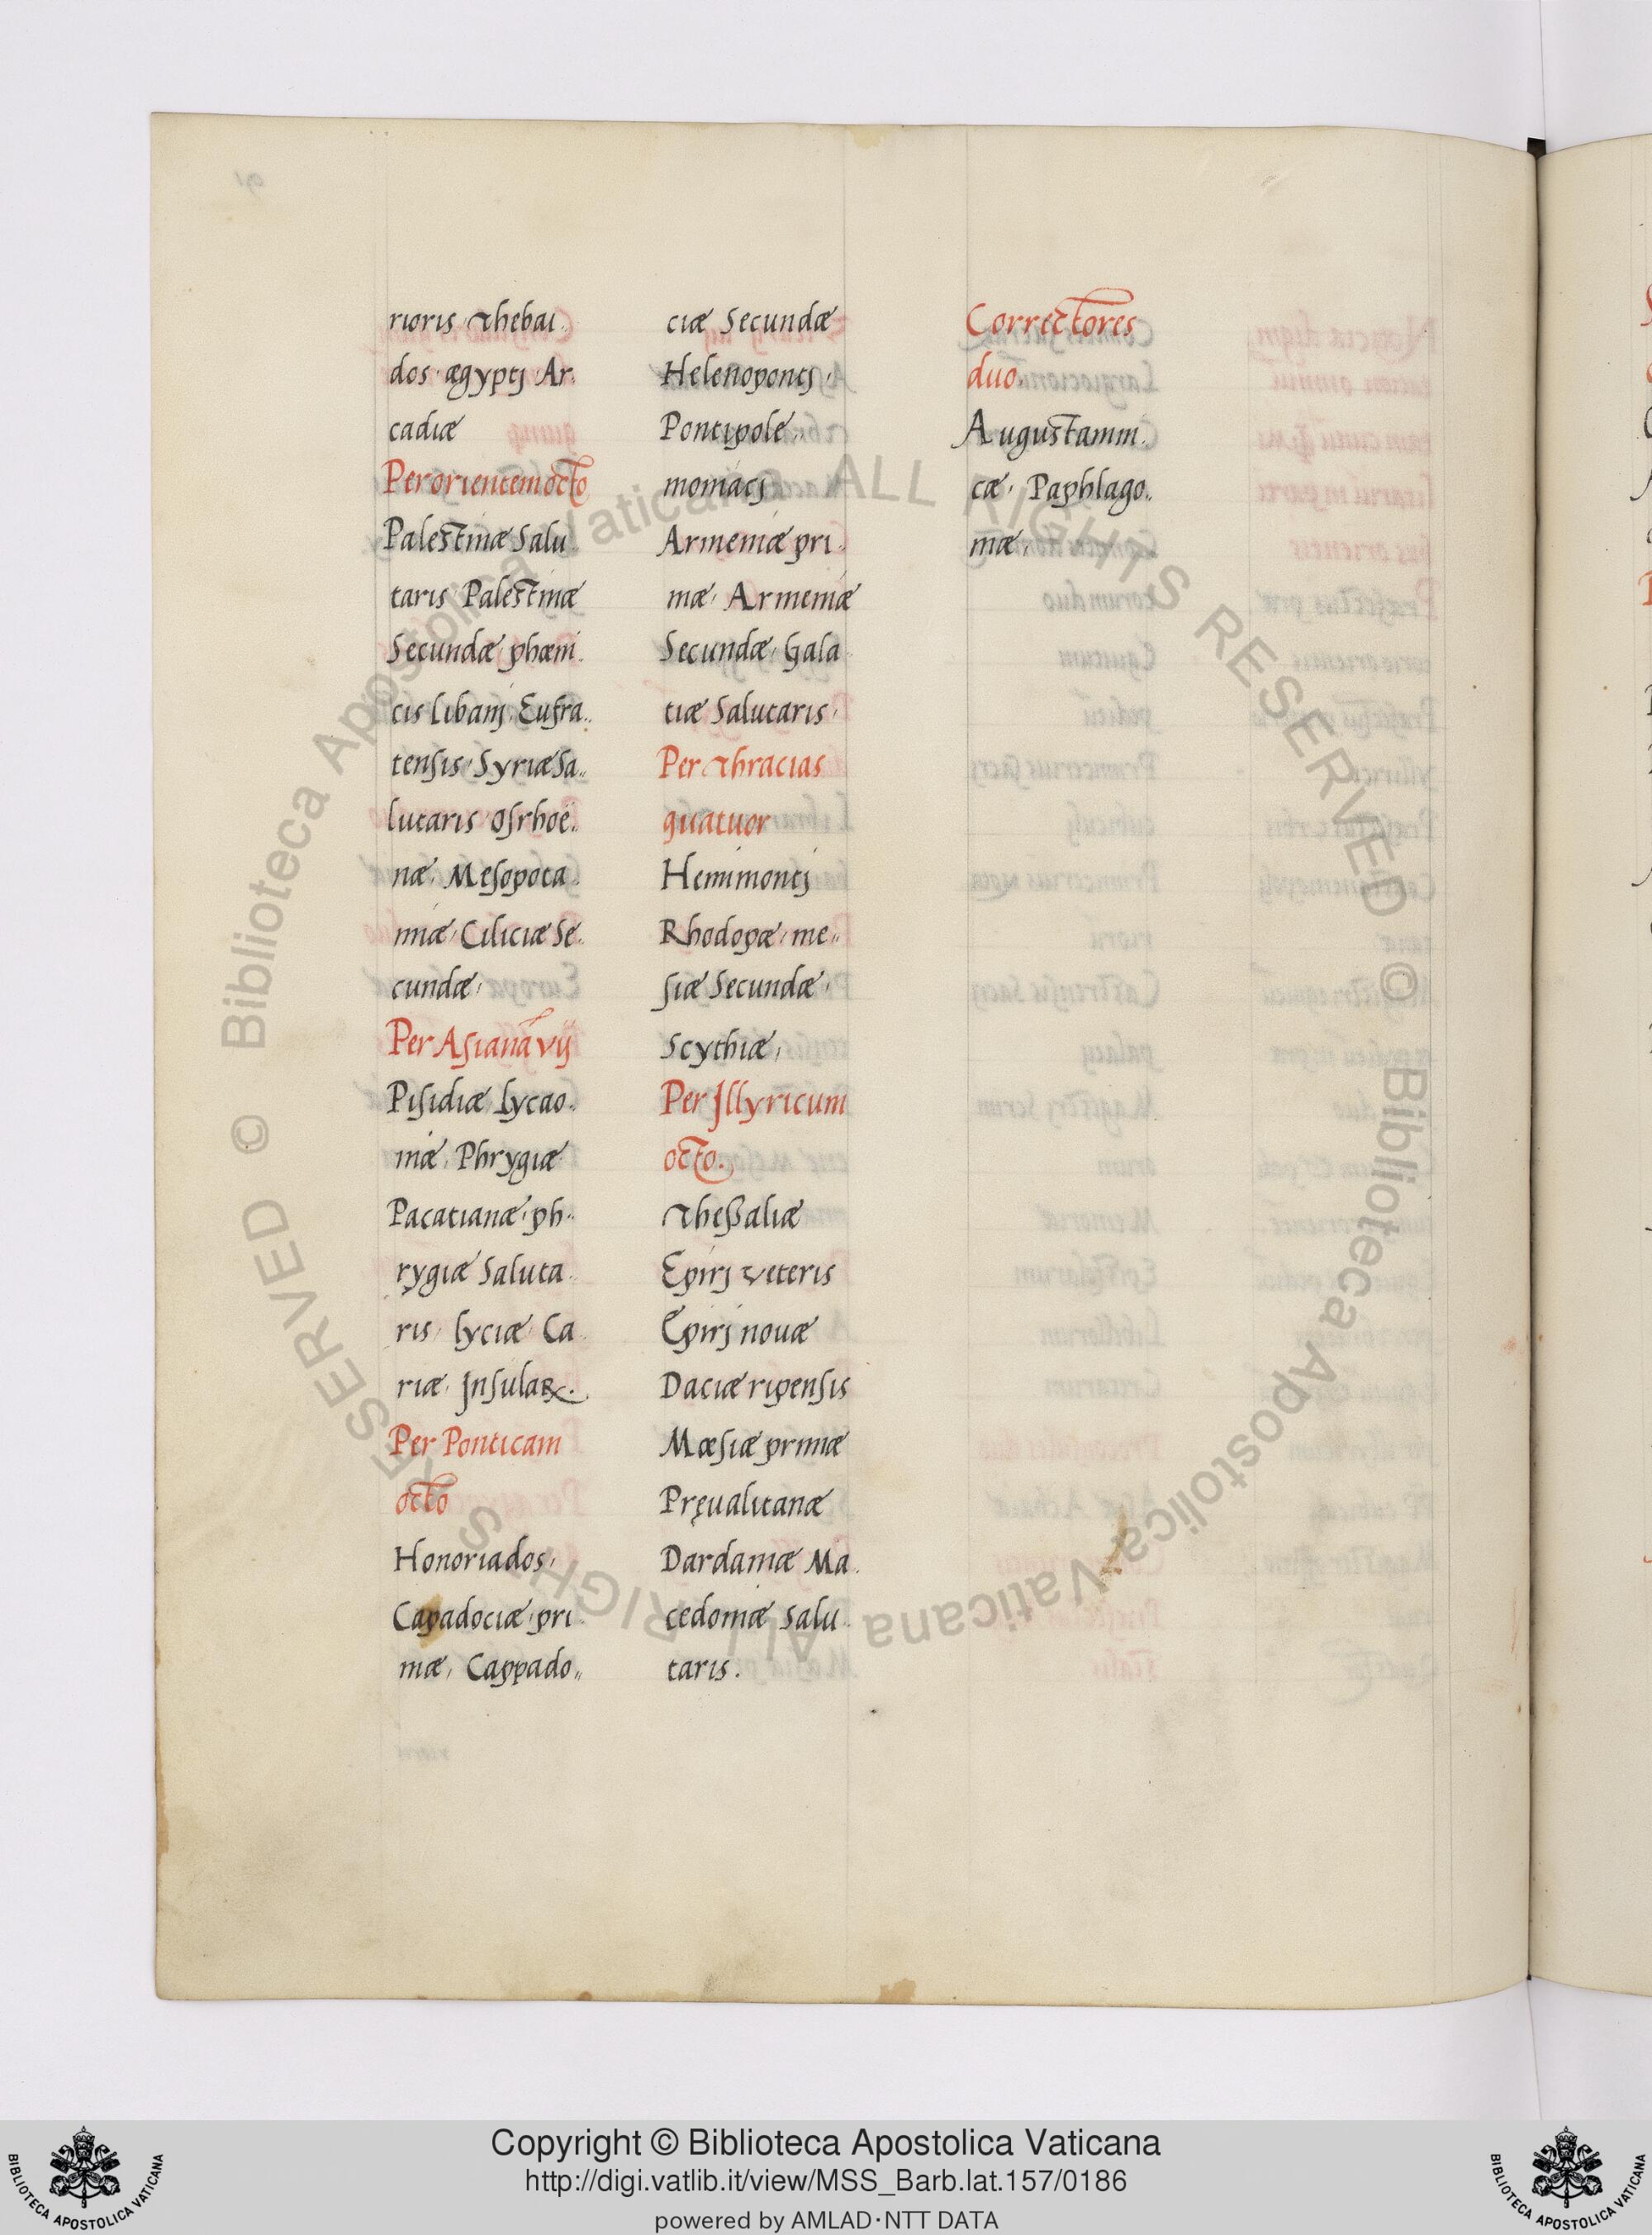 rioris Thebai.
dos· ægyptj Ar.
cadiæ
Per orientem octo
Palestinæ Salu
taris Palestinæ
Secundæ phœni.
cis Libanj Eufra..
tensis· Syriæ Sa..
lutaris Osrhoë..
næ. Mesopota.
miæ· Ciliciæ Se.
cundæ·
Per Asianā vij
Pisidiæ Lycao.
niæ. Phrygiæ
Pacatianæ· ph..
rygiæ Saluta.
ris. lyciæ· Ca.
riæ. Insulaꝝ.
Per Ponticam
octo
Honoriados·
Capadociæ· pri.
mæ· Cappado..
ciæ Secundæ
Helenopontj·
Pontipole.
moniacj
Armeniæ pri.
mæ· Armeniæ
Secundæ· Gala
tiæ Salutaris·
Per Thracias
quatuor
Hemimontj
Rhodopæ· me..
siæ Secundæ·
Scythiæ·
Per Illyricum
octo.
Theßaliæ
Epirj veteris
Epirj nouæ
Daciæ ripensis
Mœsiæ primæ
Pręualitanæ
Dardaniæ Ma.
cedoniæ Salu.
taris.
Correctores
duo
Augustamni.
cæ· Paphlago..
niæ.
© Biblioteca Apostolica Vaticana ALL RIGHTS RESERVED © Biblioteca Apostolica Vaticana ALL RIGHTS RESERVED
Copyright © Biblioteca Apostolica Vaticana
http://digi.vatlib.it/view/MSS_Barb.lat.157/0186
powered by AMLAD·NTT DATA
BIBLIOTECA APOSTOLICA VATICANA
BIBLIOTECA APOSTOLICA VATICANA